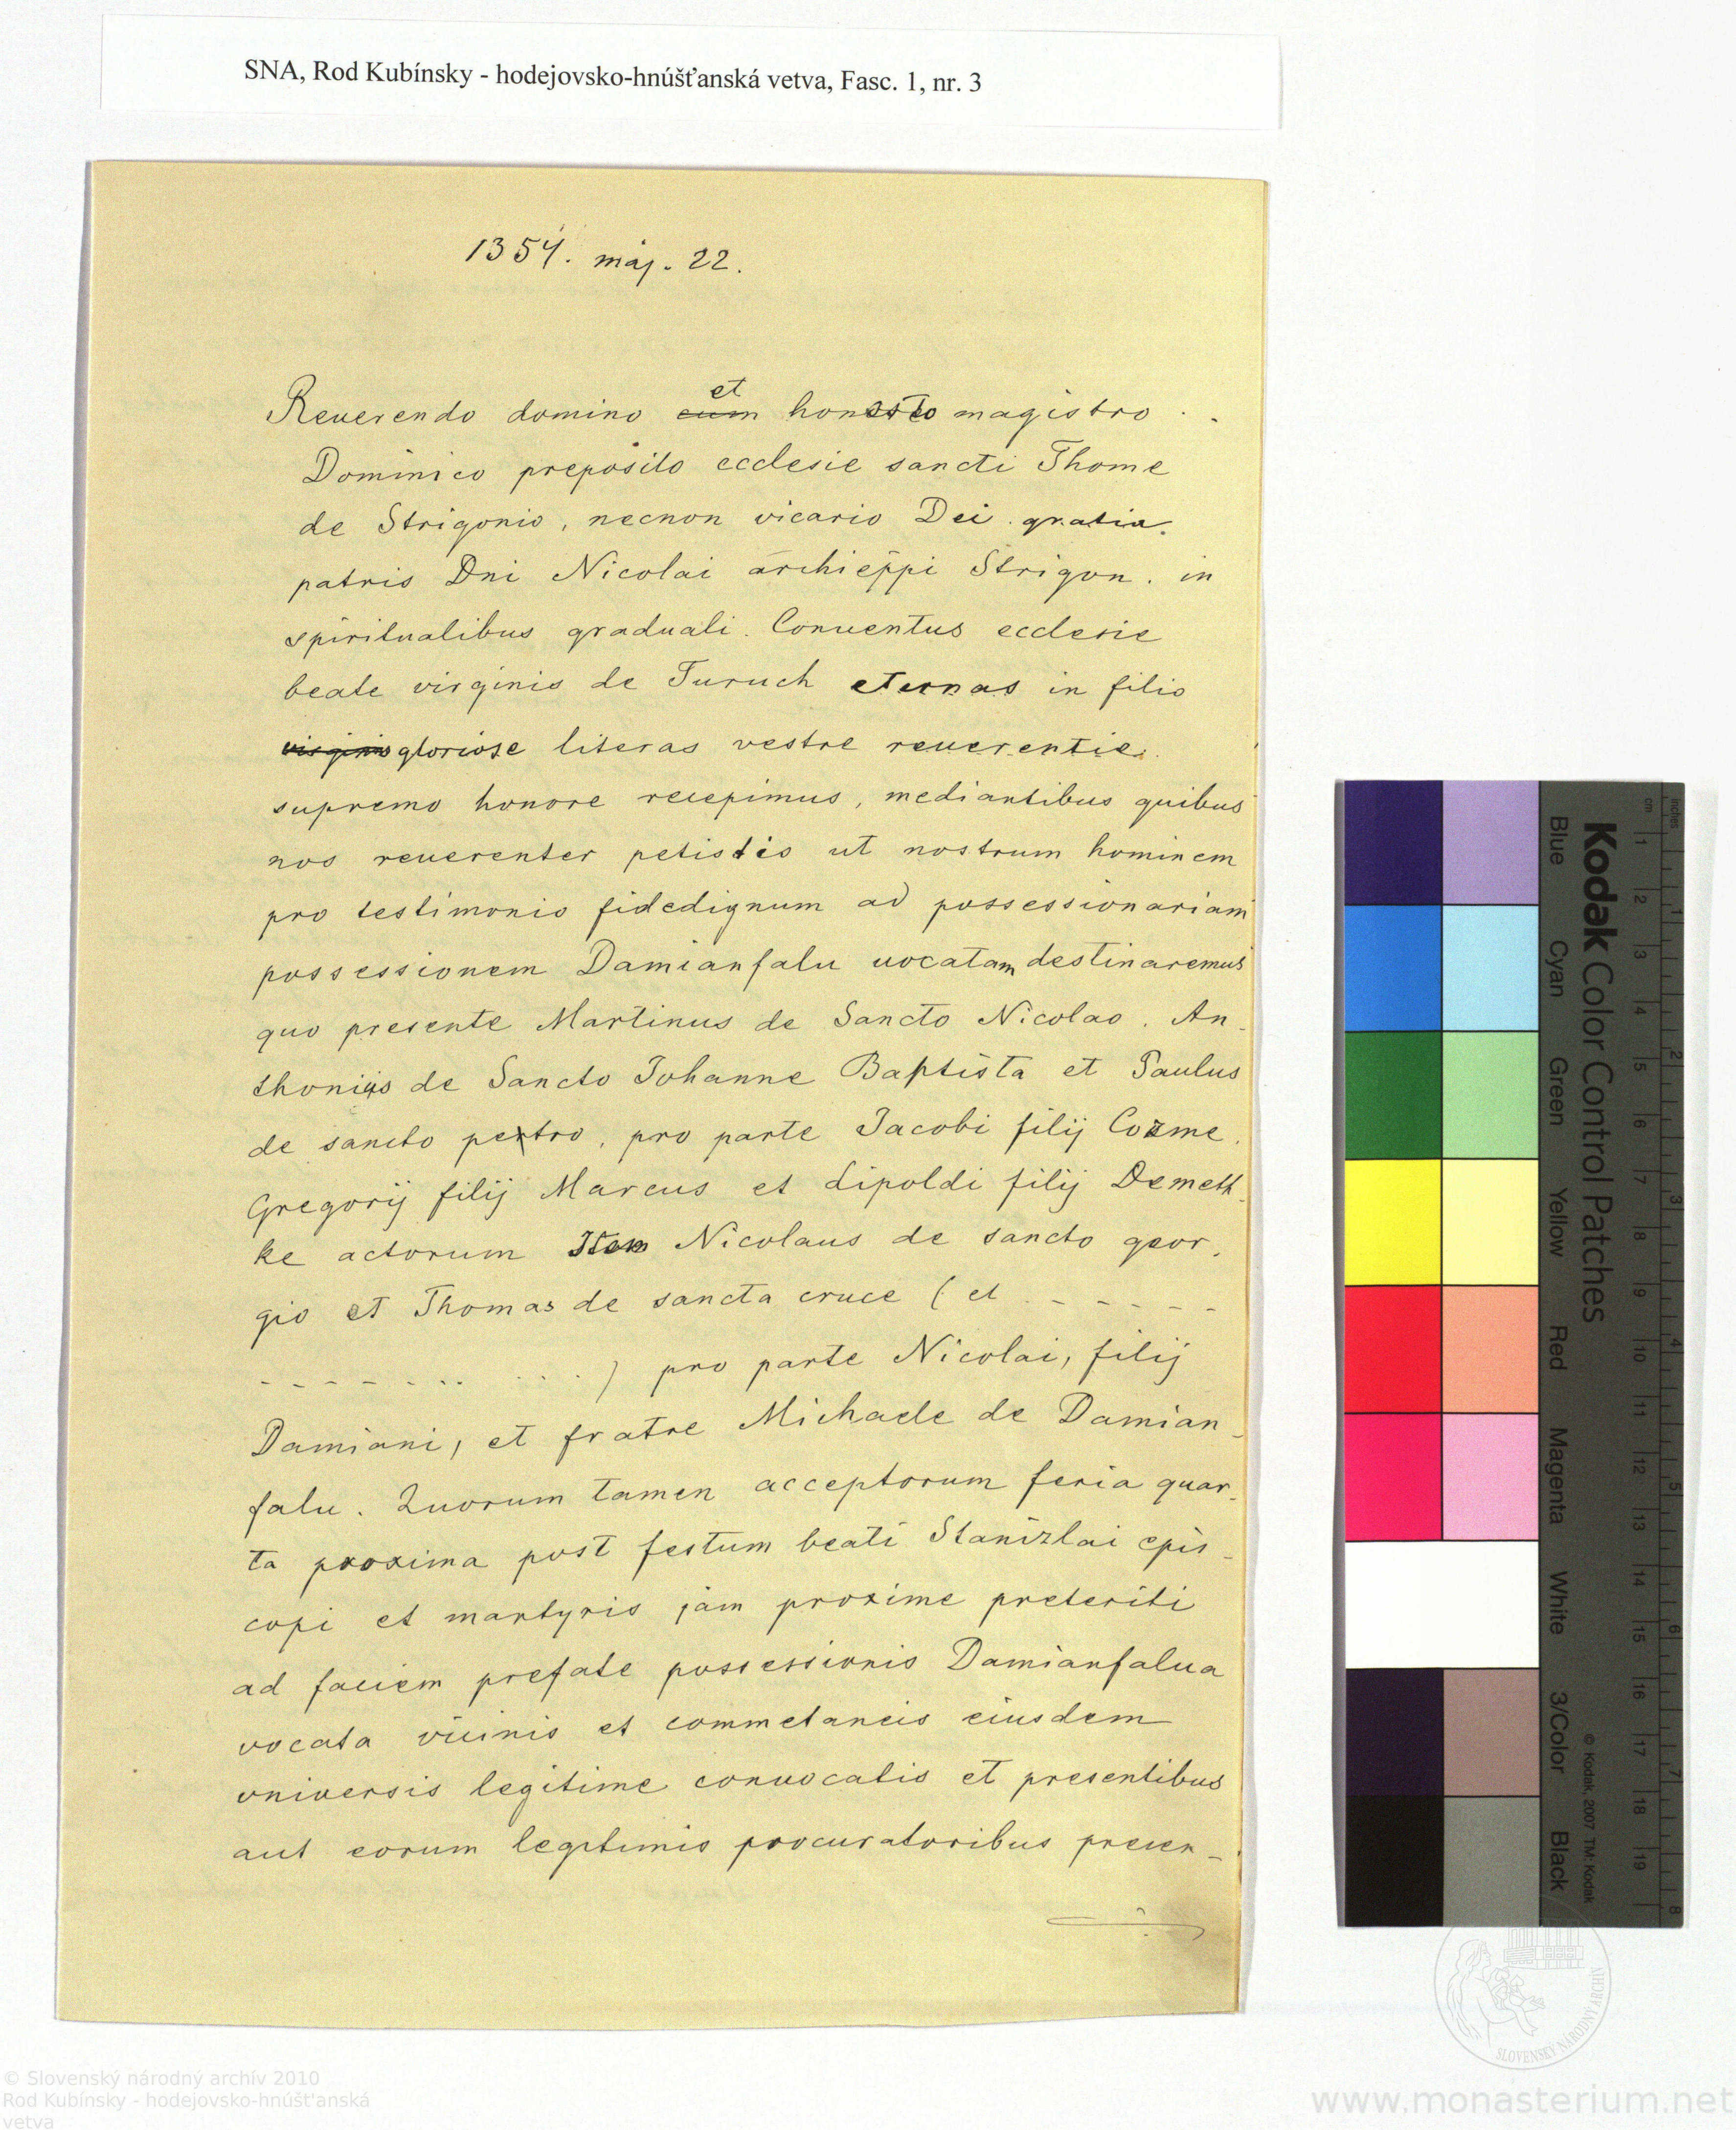 SNA, Rod Kubínsky - hodejovsko-hnúšťanská vetva, Fasc. 1, nr. 3
1354. máj. 22.
et
Reuerendo domino cum honesto magistro . .
Dominico preposito ecclesie sancti Thome
de Strigonio, necnon vicario Dei gratia.
patris Dni Nicolai archieppi Strigon. in
spiritualibus graduali. Conuentus ecclesie
beate virginis de Turuch eternas in filio
virginis gloriose literas vestre reuerentie.
supremo honore recepimus, mediantibus quibus
nos reuerenter petistis ut nostrum hominem
pro testimonio fidedignum ad possessionariam
possessionem Damianfalu uocatam destinaremus
quo presente Martinus de Sancto Nicolao. An-
thonius de Sancto Johanne Baptista et Paulus
de sancto petro, pro parte Jacobi filij Cozme.
Gregorij filij Marcus et Lipoldi filij Demeth-
ke actorum Item Nicolaus de sancto geor-
gio et Thomas de sancta cruce (et - - - - - -
- - - - - - . . . . . ) pro parte Nicolai, filij
Damiani, et fratre Michaele de Damian-
falu. Quorum tamen acceptorum feria quar-
ta proxima post festum beati Stanizlai epis-
copi et martyris jam proxime preteriti
ad faciem prefate possessionis Damianfalua
vocata vicinis et commetaneis eiusdem
vniuersis legitime conuocatis et presentibus
aut eorum legitimis procuratoribus presen-
Kodak Color Control Patches
Blue
Cyan
Green
Yellow
Red
Magenta
White
3/Color
Black
© Kodak, 2007 TM: Kodak
cm 1 2 3 4 5 6 7 8 9 10 11 12 13 14 15 16 17 18 19
inches 1 2 3 4 5 6 7 8
SLOVENSKÝ NÁRODNÝ ARCHÍV
© Slovenský národný archív 2010
Rod Kubínsky - hodejovsko-hnúšt'anská
vetva
www.monasterium.net